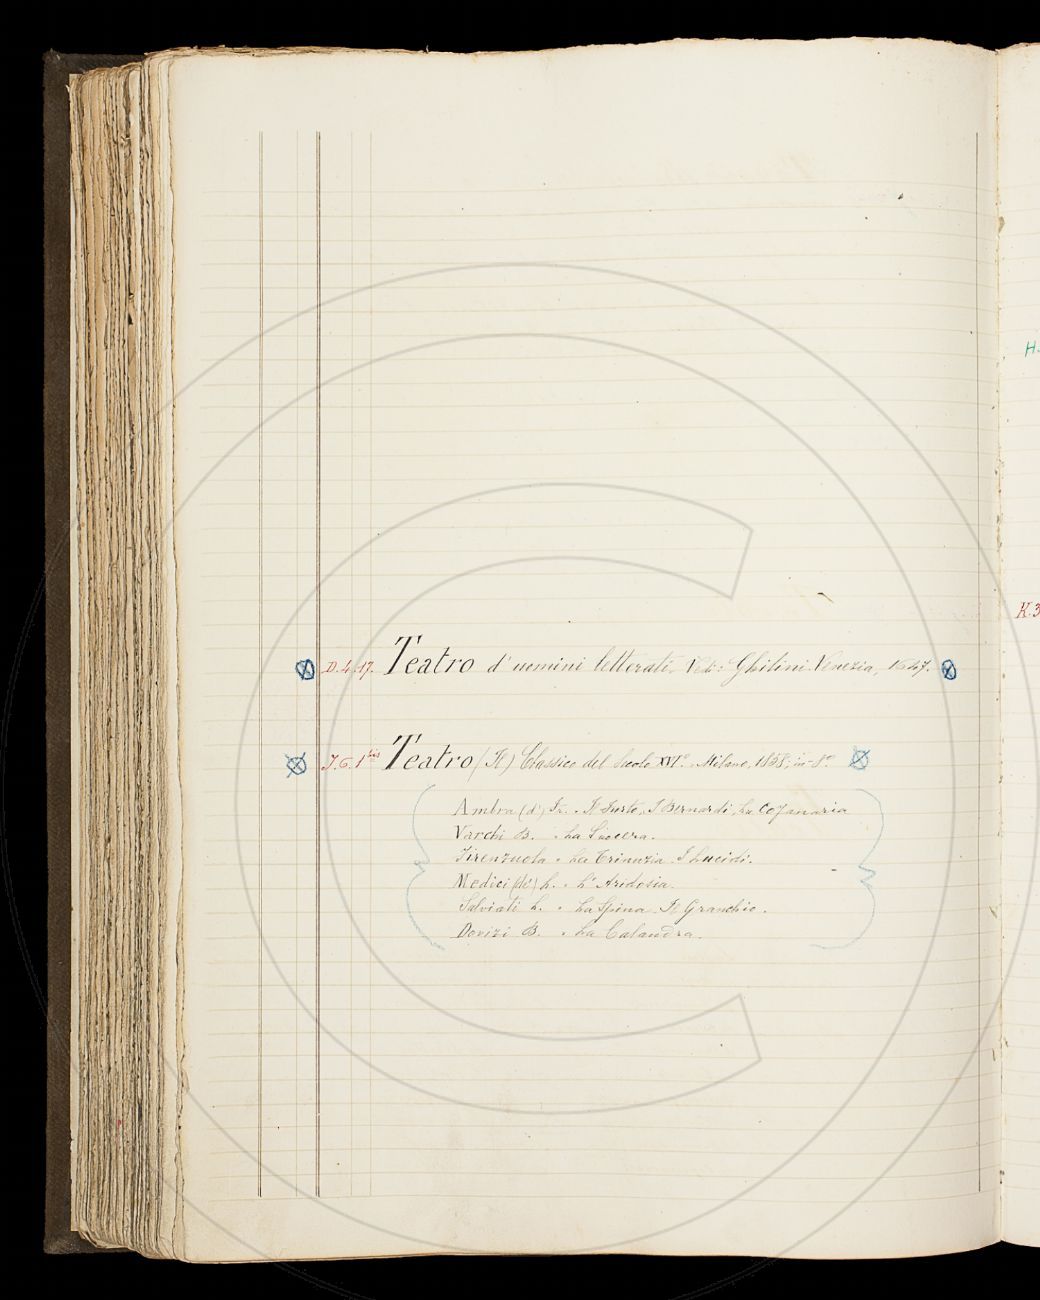 H.
K.3
D.4.17. Teatro d'uomini letterati. Vedi: Ghilini. Venezia, 1647.
J.6.1bis Teatro (Il) Classico del Secolo XVI°. Milano, 1858; in-8°
Ambra (d') Fr. - Il Furto, I Bernardi, La Cofanaria
Varchi B. - La Suocera.
Firenzuola - La Trinuzia. I Lucidi.
Medici (de') L. - L'Aridosia.
Salviati L. - La Spina. Il Granchio.
Dovizi B. - La Calandra.